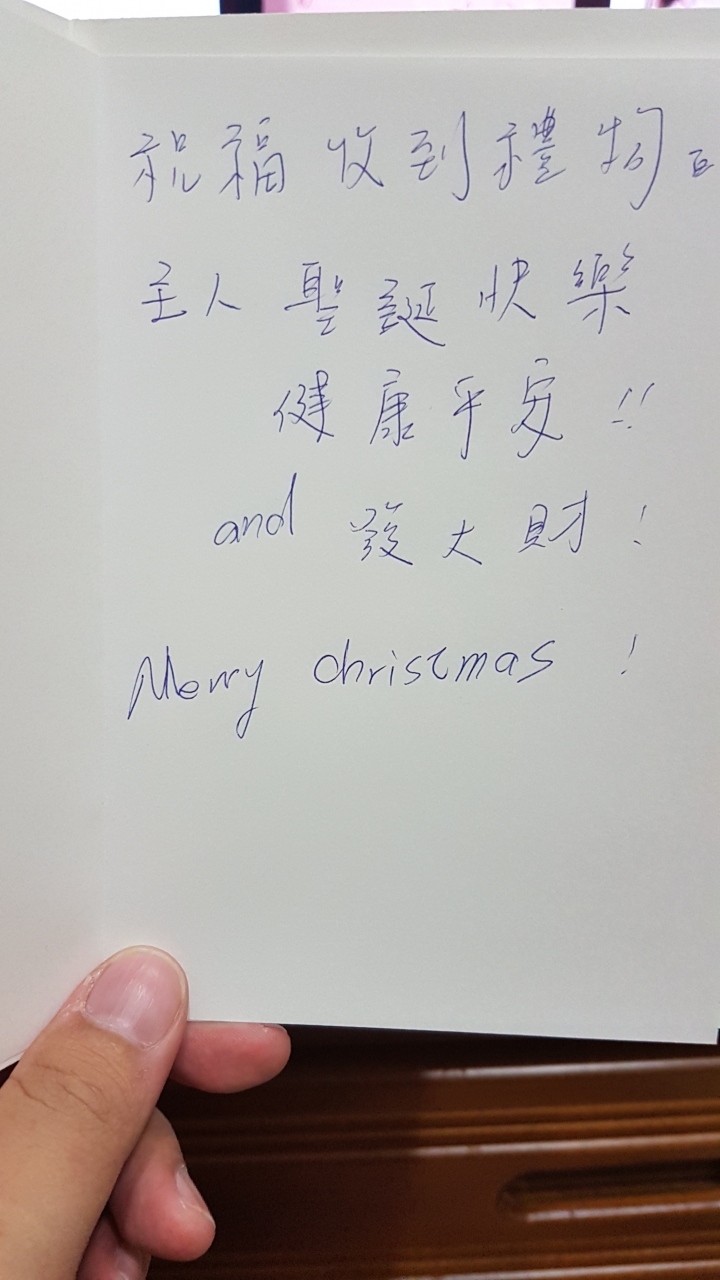 祝福收到禮物
主人聖誕快樂
健康平安!!
and 發大財!
Merry christmas !